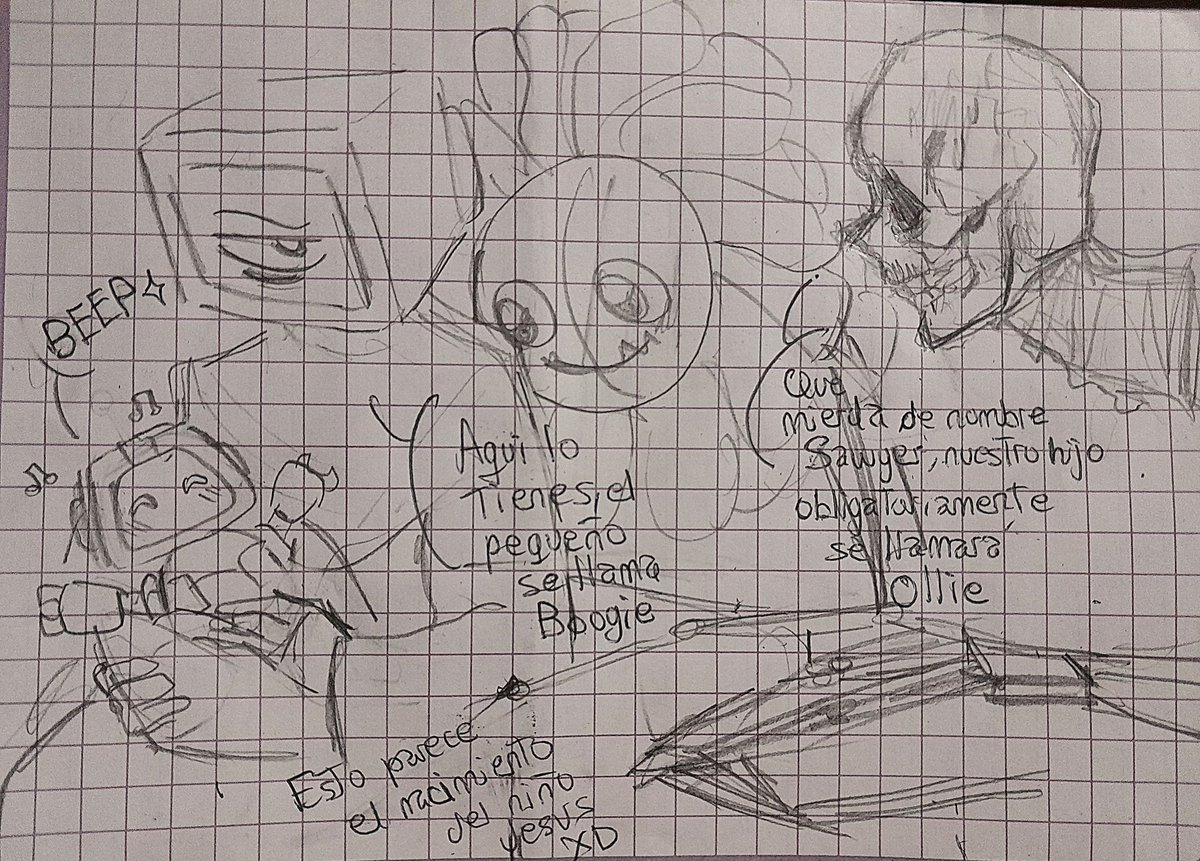 BEEP
Aqui lo
Tienes, el
pequeño
se llama
Boogie
Que
mierda de nombre
Sawyer, nuestro hijo
obligatoriamente
se llamará
Ollie
Esto parece
el nacimiento
del niño
Jesus
XD